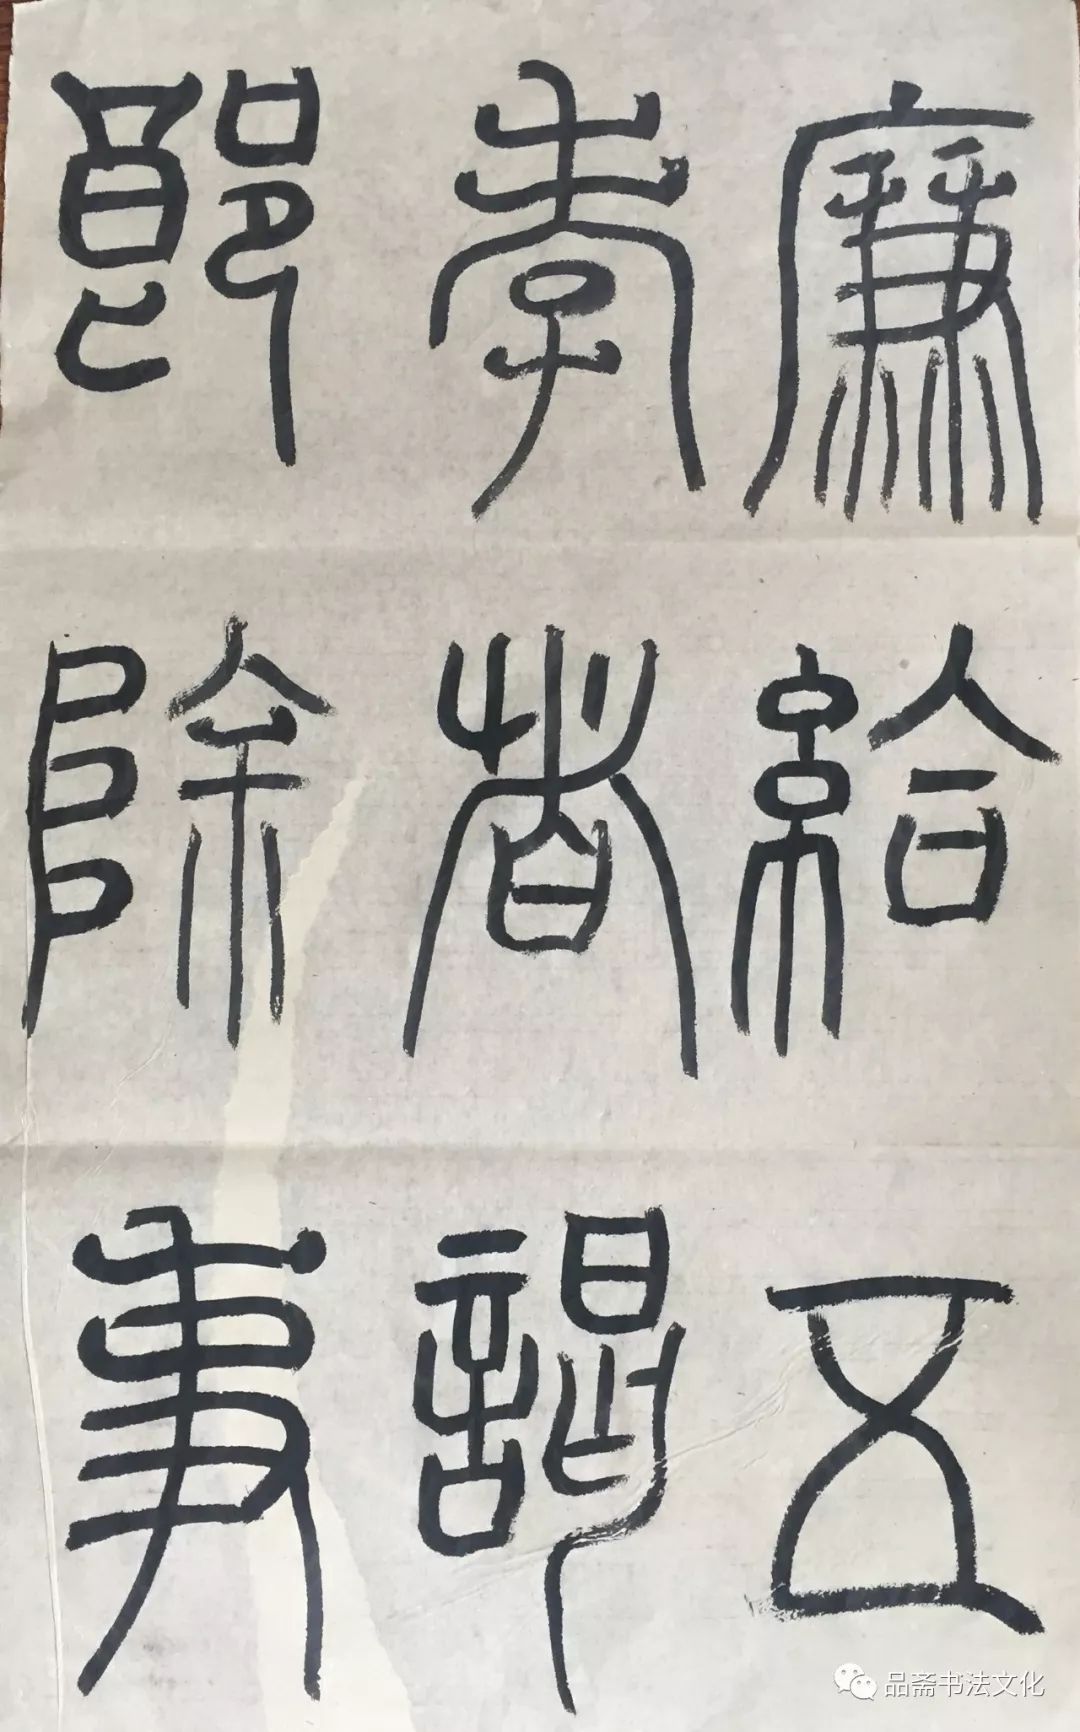 廉給五
孝者謁
郎除事
品斋书法文化